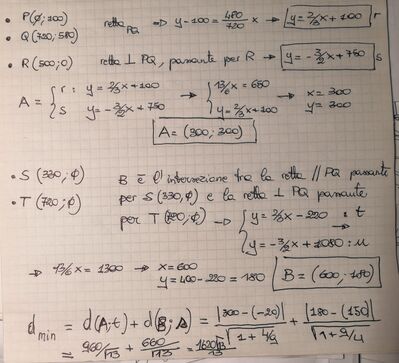 • P(∅; 100) retta PQ ⇒ y-100 = 480/720 x ⇒ y = 2/3x + 100 r
• Q(720; 580)
• R(500; 0) retta ⊥ PQ, passante per R → y = -3/2x + 750 s
A = { r : y = 2/3x + 100 → { 13/6x = 650 → x = 300
s y = -3/2x + 750 y = 2/3x + 100 y = 300
A = (300; 300)
• S(330; ∅) B è l'intersezione tra la retta // PQ passante
• T(720; ∅) per S(330, ∅) e la retta ⊥ PQ passante
per T(720, ∅) → { y = 2/3x - 220 : t
y = -3/2x + 1080 : u
⇒ 13/6x = 1300 → x = 600
y = 400 - 220 = 180 B = (600; 180)
dmin = d(A; t) + d(B; s) = |300 - (-20)| / √1 + 4/9 + |180 - (150)| / √1 + 9/4
= 960/√13 + 660/√13 = 1620√13/13